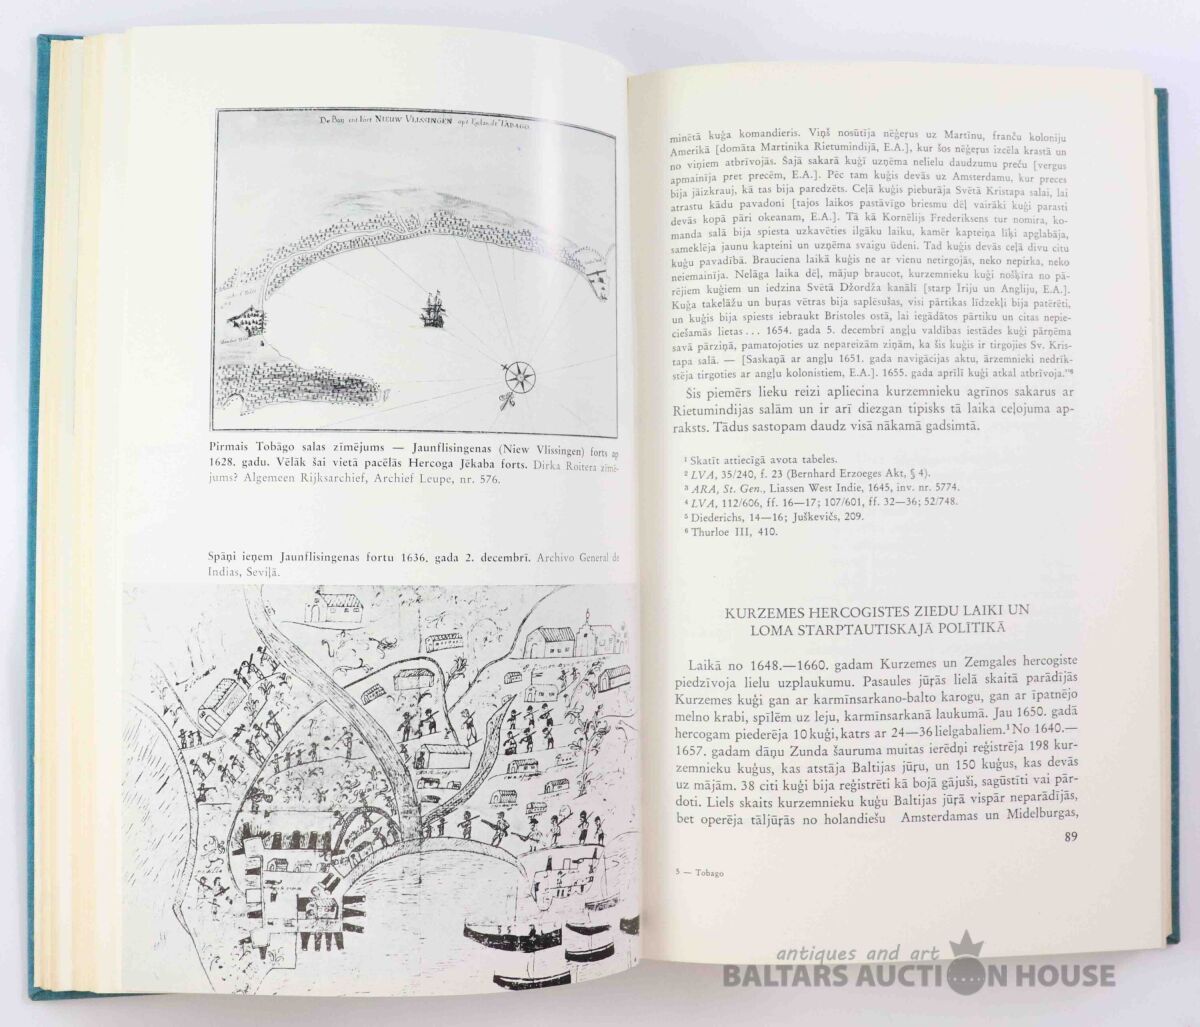 De Bay en't fort NIEUW VLISSINGEN opt Eylandt TABAGO.
Pirmais Tobāgo salas zīmējums — Jaunflisingenas (Niew Vlissingen) forts ap
1628. gadu. Vēlāk šai vietā pacēlās Hercoga Jēkaba forts. Dirka Roitera zīmē-
jums? Algemeen Rijksarchief, Archief Leupe, nr. 576.
Spāņi ieņem Jaunflisingenas fortu 1636. gada 2. decembrī. Archivo General de
Indias, Seviļā.
minētā kuģa komandieris. Viņš nosūtīja nēģeŗus uz Martinu, franču koloniju
Amerikā [domāta Martinika Rietumindijā, E.A.], kur šos nēģeŗus izcēla krastā un
no viņiem atbrīvojās. Šajā sakarā kuģī uzņēma nelielu daudzumu preču [vergus
apmainīja pret precēm, E.A.]. Pēc tam kuģis devās uz Amsterdamu, kur preces
bija jāizkrauj, kā tas bija paredzēts. Ceļā kuģis pieburāja Svētā Kristapa salai, lai
atrastu kādu pavadoni [tajos laikos pastāvīgo briesmu dēļ vairāki kuģi parasti
devās kopā pāri okeanam, E.A.]. Tā kā Kornēlijs Frederiksens tur nomira, ko-
manda salā bija spiesta uzkavēties ilgāku laiku, kamēr kapteiņa līķi apglabāja,
sameklēja jaunu kapteini un uzņēma svaigu ūdeni. Tad kuģis devās ceļā divu citu
kuģu pavadībā. Brauciena laikā kuģis ne ar vienu netirgojās, neko nepirka, neko
neiemainīja. Nelāga laika dēļ, mājup braucot, kurzemnieku kuģi nošķīra no pā-
rējiem kuģiem un iedzina Svētā Džordža kanālī [starp Īriju un Angliju, E.A.].
Kuģa takelāžu un buŗas vētras bija saplēsušas, visi pārtikas līdzekļi bija patērēti,
un kuģis bija spiests iebraukt Bristoles ostā, lai iegādātos pārtiku un citas nepie-
ciešamās lietas . . . 1654. gada 5. decembrī angļu valdības iestādes kuģi pārņēma
savā pārziņā, pamatojoties uz nepareizām ziņām, ka šis kuģis ir tirgojies Sv. Kris-
tapa salā. — [Saskaņā ar angļu 1651. gada navigācijas aktu, ārzemnieki nedrīk-
stēja tirgoties ar angļu kolonistiem, E.A.]. 1655. gada aprīlī kuģi atkal atbrīvoja."⁶
Šis piemērs lieku reizi apliecina kurzemnieku agrīnos sakarus ar
Rietumindijas salām un ir arī diezgan tipisks tā laika ceļojuma ap-
raksts. Tādus sastopam daudz visā nākamā gadsimtā.
¹ Skatīt attiecīgā avota tabeles.
² LVA, 35/240, f. 23 (Bernhard Erzoeges Akt, § 4).
³ ARA, St. Gen., Liassen West Indie, 1645, inv. nr. 5774.
⁴ LVA, 112/606, ff. 16—17; 107/601, ff. 32—36; 52/748.
⁵ Diederichs, 14—16; Juškevičs, 209.
⁶ Thurloe III, 410.
KURZEMES HERCOGISTES ZIEDU LAIKI UN
LOMA STARPTAUTISKAJĀ POLITIKĀ
Laikā no 1648.—1660. gadam Kurzemes un Zemgales hercogiste
piedzīvoja lielu uzplaukumu. Pasaules jūŗās lielā skaitā parādījās
Kurzemes kuģi gan ar karmīnsarkano-balto karogu, gan ar īpatnējo
melno krabi, spīlēm uz leju, karmīnsarkanā laukumā. Jau 1650. gadā
hercogam piederēja 10 kuģi, katrs ar 24—36 lielgabaliem.¹ No 1640.—
1657. gadam dāņu Zunda šauruma muitas ierēdņi reģistrēja 198 kur-
zemnieku kuģus, kas atstāja Baltijas jūŗu, un 150 kuģus, kas devās
uz mājām. 38 citi kuģi bija reģistrēti kā bojā gājuši, sagūstīti vai pār-
doti. Liels skaits kurzemnieku kuģu Baltijas jūŗā vispār neparādījās,
bet operēja tāljūŗās no holandiešu Amsterdamas un Midelburgas,
89
5 — Tobago
antiques and art
BALTARS AUCTION HOUSE